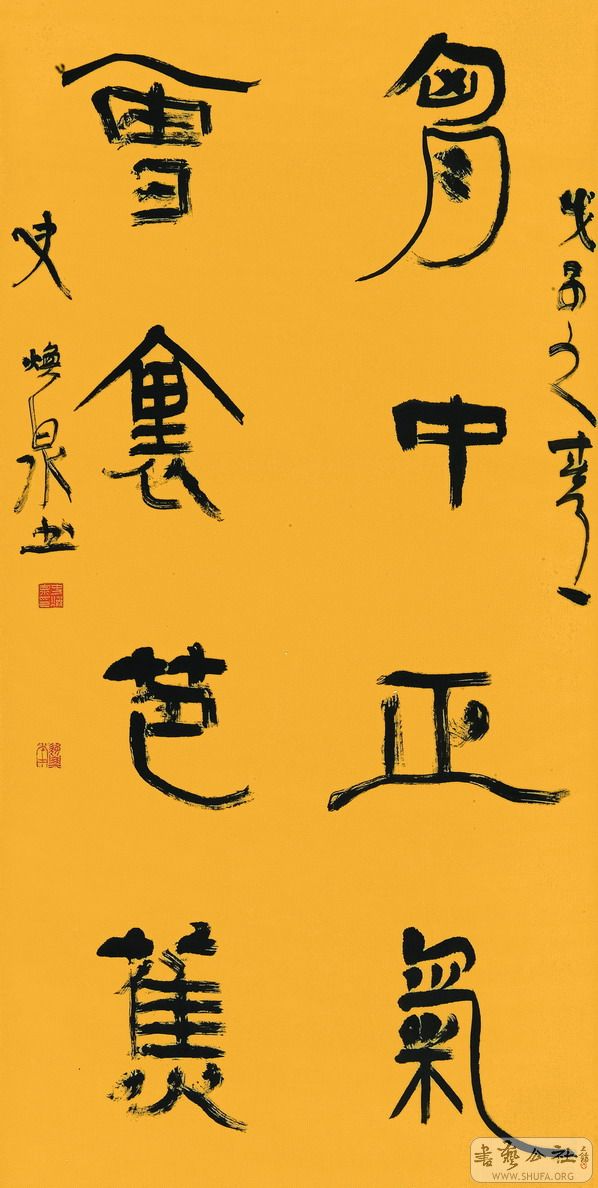 戊子之
胷中正氣
雪裏芭蕉
史煥泉书
書藝公社
WWW.SHUFA.ORG